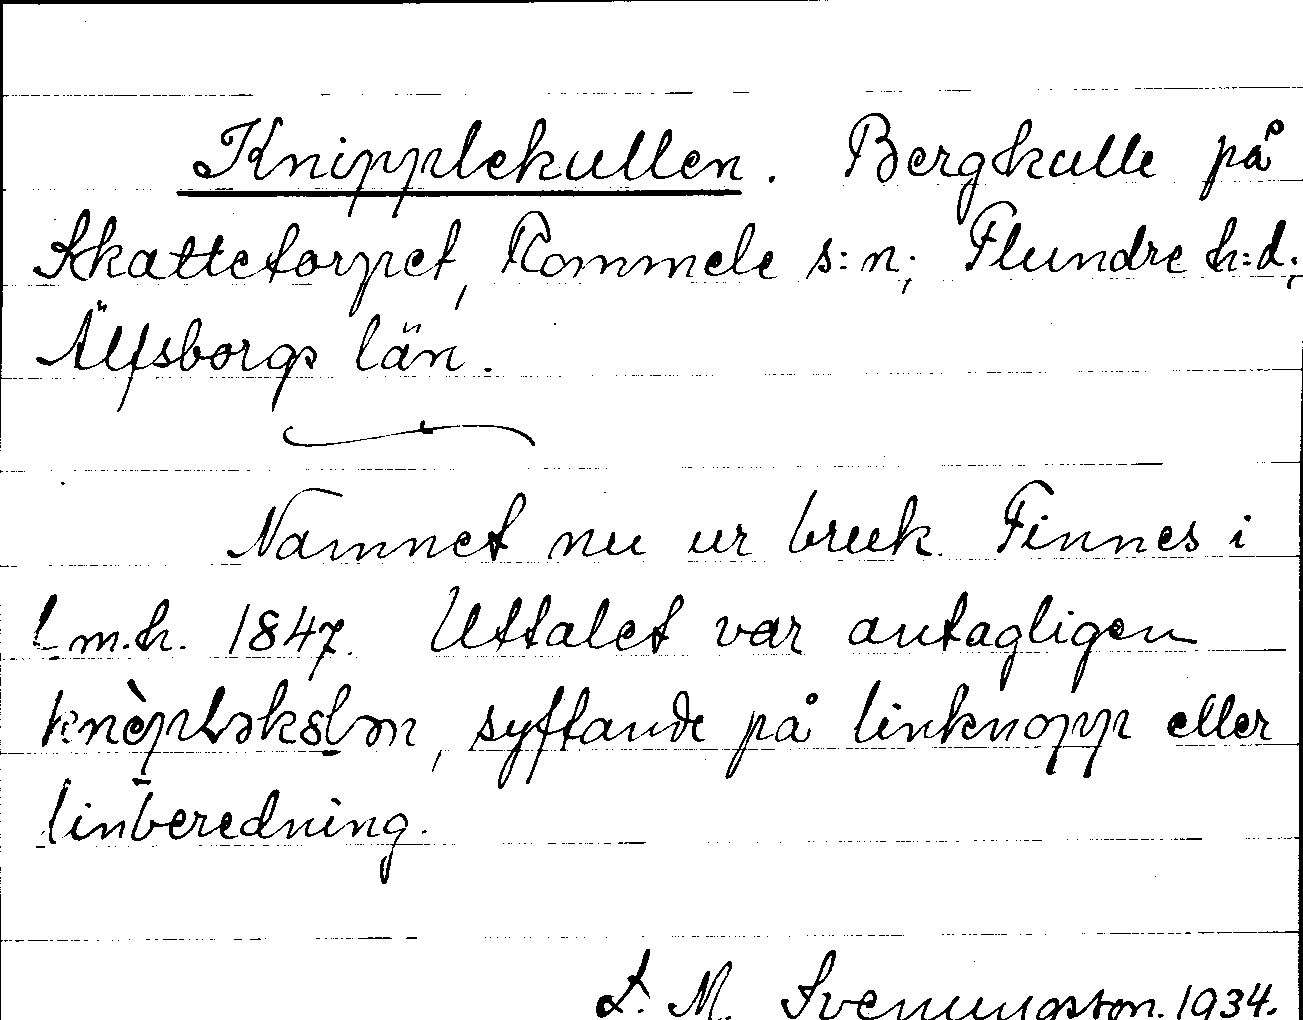 Knipplekullen. Bergkulle på
Skattetorpet, Rommele s:n; Flundre h:d;
Älfsborgs län.
Namnet nu ur bruk. Finnes i
l.m.h. 1847. Uttalet var antagligen
knèpləkələn, syftande på linknopp eller
linberedning.
L. M. Svenungsson. 1934.